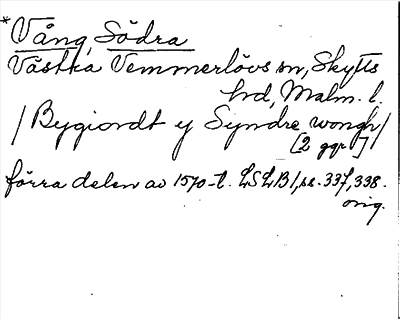 *Vång, Södra
Västra Vemmerlövs sn, Skytts
hd, Malm. l.
/Bygiordt y Syndre wongh/
[2 ggr]
förra delen av 1570-t. LSLB1, s. 337, 338.
orig.